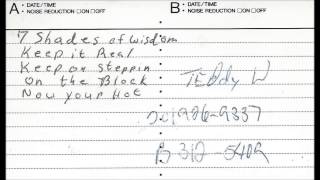 A. DATE/TIME
NOISE REDUCTION □ON □OFF
B. DATE/TIME
NOISE REDUCTION □ON □OFF
7 Shades of wisdom
Keep it Real
Keep on steppin
on the Block
Now your Hot
TEddy W
926-9337
B 312-5409